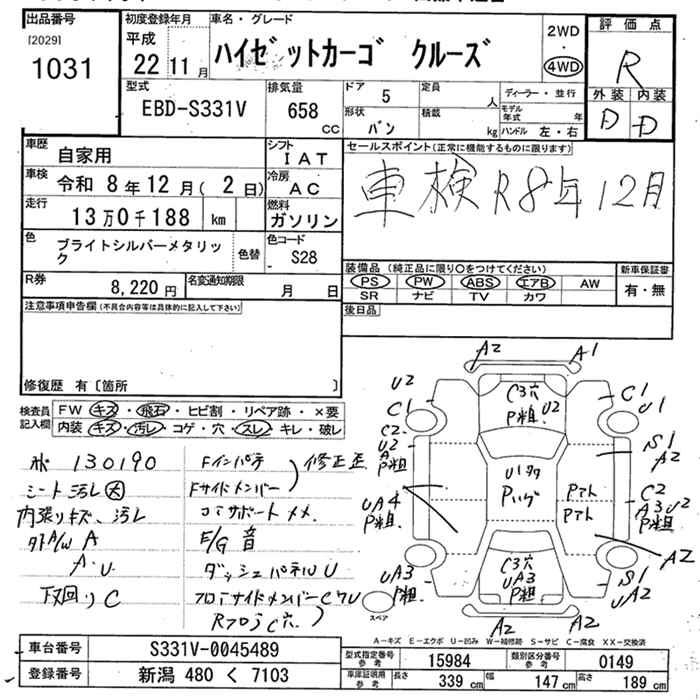 出品番号
[2029]
1031
初度登録年月
平成
22 11 月
車名・グレード
ハイゼットカーゴ クルーズ
2WD
・
4WD
評価点
R
外装 内装
D D
型式
EBD-S331V
排気量
658
cc
ドア
5
形状
バン
定員
人
積載
kg
ディーラー・並行
モデル年式 年
ハンドル 左・右
車歴
自家用
シフト
IAT
車検
令和 8年12月( 2日)
冷房
AC
走行
13万0千188 km
燃料
ガソリン
色
ブライトシルバーメタリック
色替
色コード
S28
R券
8,220 円
名変通知期限
月 日
セールスポイント(正常に機能するものに限ります)
車検R8年12月
装備品 (純正品に限り○をつけてください)
PS PW ABS エアB AW
SR ナビ TV カワ
新車保証書
有・無
後日品
注意事項申告欄(不具合内容等は具体的に記入して下さい)
修復歴 有〔箇所 〕
検査員記入欄
FW キズ・飛石・ヒビ割・リペア跡・×要
内装 キズ・汚レ・コゲ・穴・スレ・キレ・破レ
130190
シート汚レ大
内張りキズ、汚レ
A
A・U
下回りC
Fインパネ
Fサイドメンバー
修正歪
コアサポートメメ.
E/G音
ダッシュパネルU
フロアサイドメンバーCワU
RフロアC穴
A2 A1
U2
C1
C2
U2
A
P粗
UA4
P粗
UA3
P粗
C3穴
U2
P粗
Uワタ
Pハゲ
Pアト
Pアト
C3穴
UA3
P粗
C1
U1
S1
A2
C2
A3U2
P粗
A2
S1
UA2
A2 A2
スペア
A-キズ E-エクボ U-凹み W-補修跡 S-サビ C-腐食 XX-交換済
車台番号
S331V-0045489
登録番号
新潟 480 く 7103
型式指定番号
参考
15984
類別区分番号
参考
0149
車庫証明用
参考
長さ 339 cm
幅 147 cm
高さ 189 cm